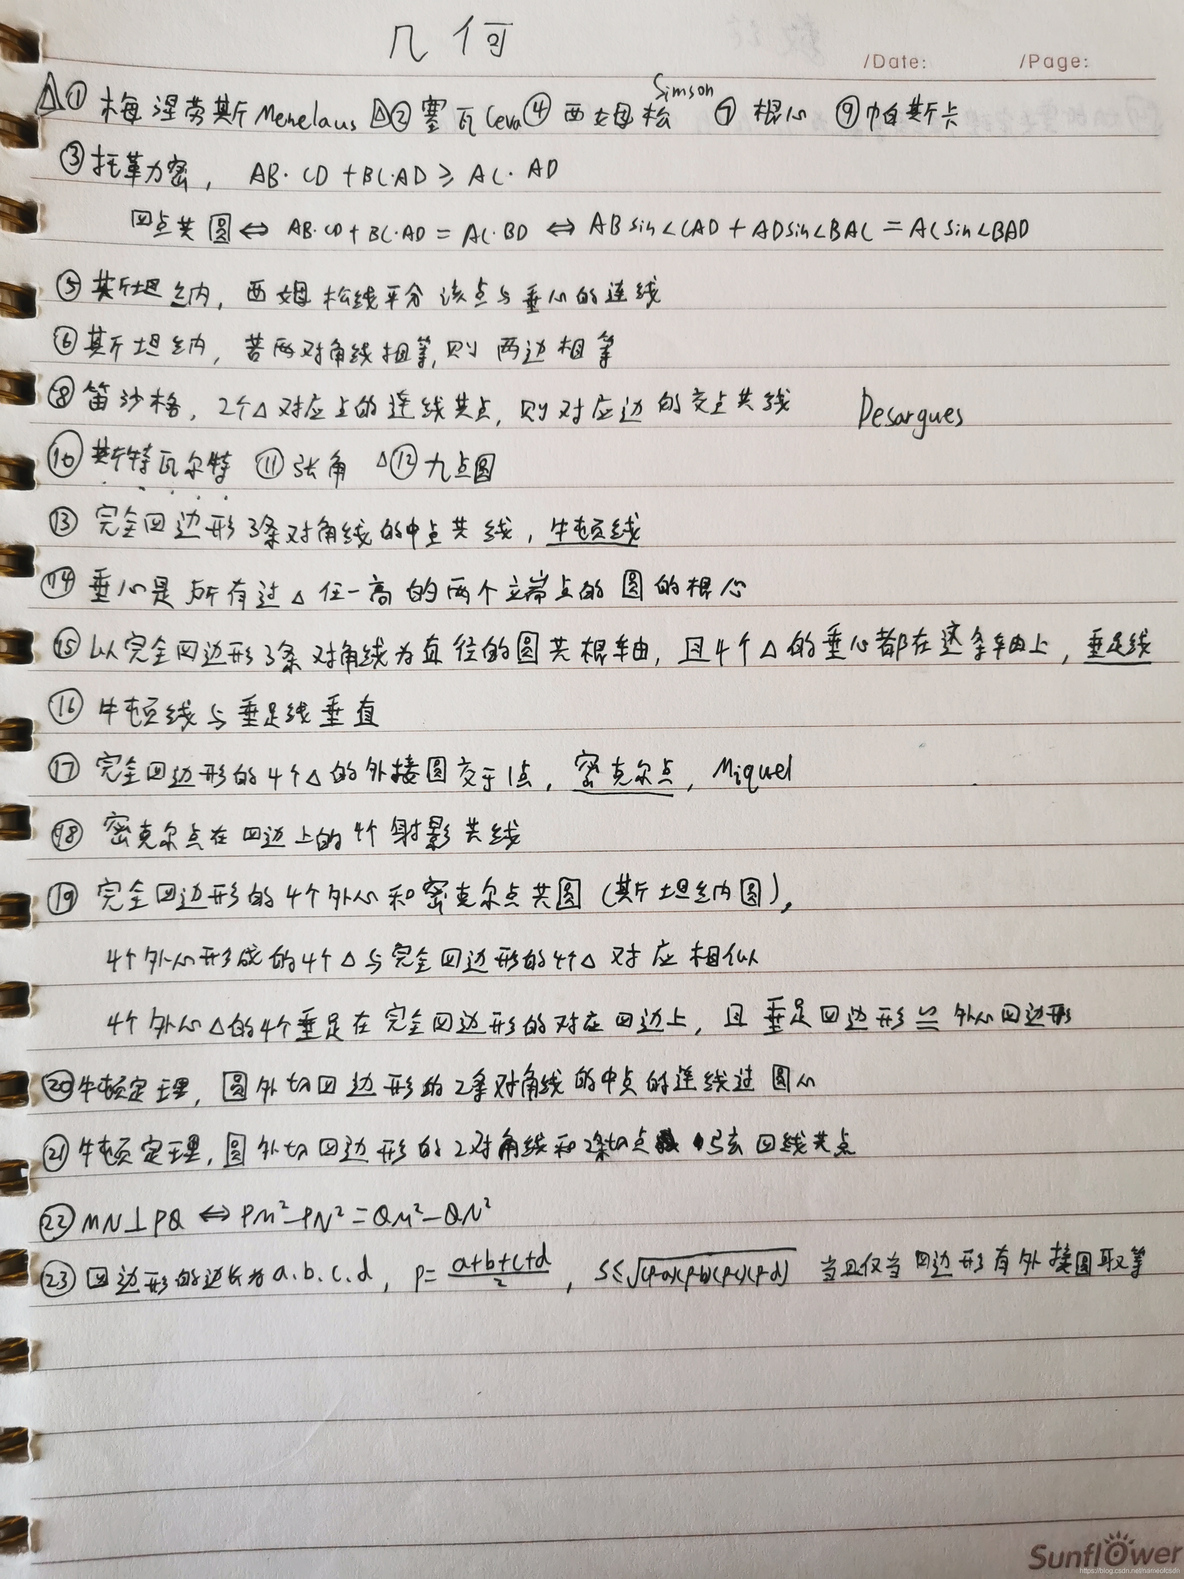 几何
/Date: /Page:
△① 梅涅劳斯Menelaus △② 塞瓦Ceva ④ 西姆松Simson ⑦ 根心 ⑨ 帕斯卡
③ 托勒密, AB·CD+BC·AD≥AC·AD
四点共圆⇔ AB·CD+BC·AD=AC·BD ⇔ ABsin∠CAD+ADsin∠BAC=ACsin∠BAD
⑤ 斯坦纳, 西姆松线平分该点与垂心的连线
⑥ 斯坦纳, 若两对角线相等,则两边相等
⑧ 笛沙格, 2个△对应点的连线共点, 则对应边的交点共线 Desargues
⑩ 斯特瓦尔特 ⑪ 张角 △⑫ 九点圆
⑬ 完全四边形3条对角线的中点共线, 牛顿线
⑭ 垂心是所有过△任一高的两个端点的圆的根心
⑮ 以完全四边形3条对角线为直径的圆共根轴, 且4个△的垂心都在这条轴上, 垂足线
⑯ 牛顿线与垂足线垂直
⑰ 完全四边形的4个△的外接圆交于1点, 密克尔点, Miquel
⑱ 密克尔点在四边上的4个射影共线
⑲ 完全四边形的4个外心和密克尔点共圆(斯坦纳圆),
4个外心形成的4个△与完全四边形的4个△对应相似
4个外心△的4个垂足在完全四边形的对应四边上, 且垂足四边形≌外心四边形
⑳ 牛顿定理, 圆外切四边形的2条对角线的中点的连线过圆心
㉑ 牛顿定理, 圆外切四边形的2对角线和2条切点弦四线共点
㉒ MN⊥PQ ⇔ PM²-PN²=QM²-QN²
㉓ 四边形的边长为a.b.c.d, p=(a+b+c+d)/2, S≤√(p-a)(p-b)(p-c)(p-d) 当且仅当四边形有外接圆取等
Sunflower
https://blog.csdn.net/nameofcsdn